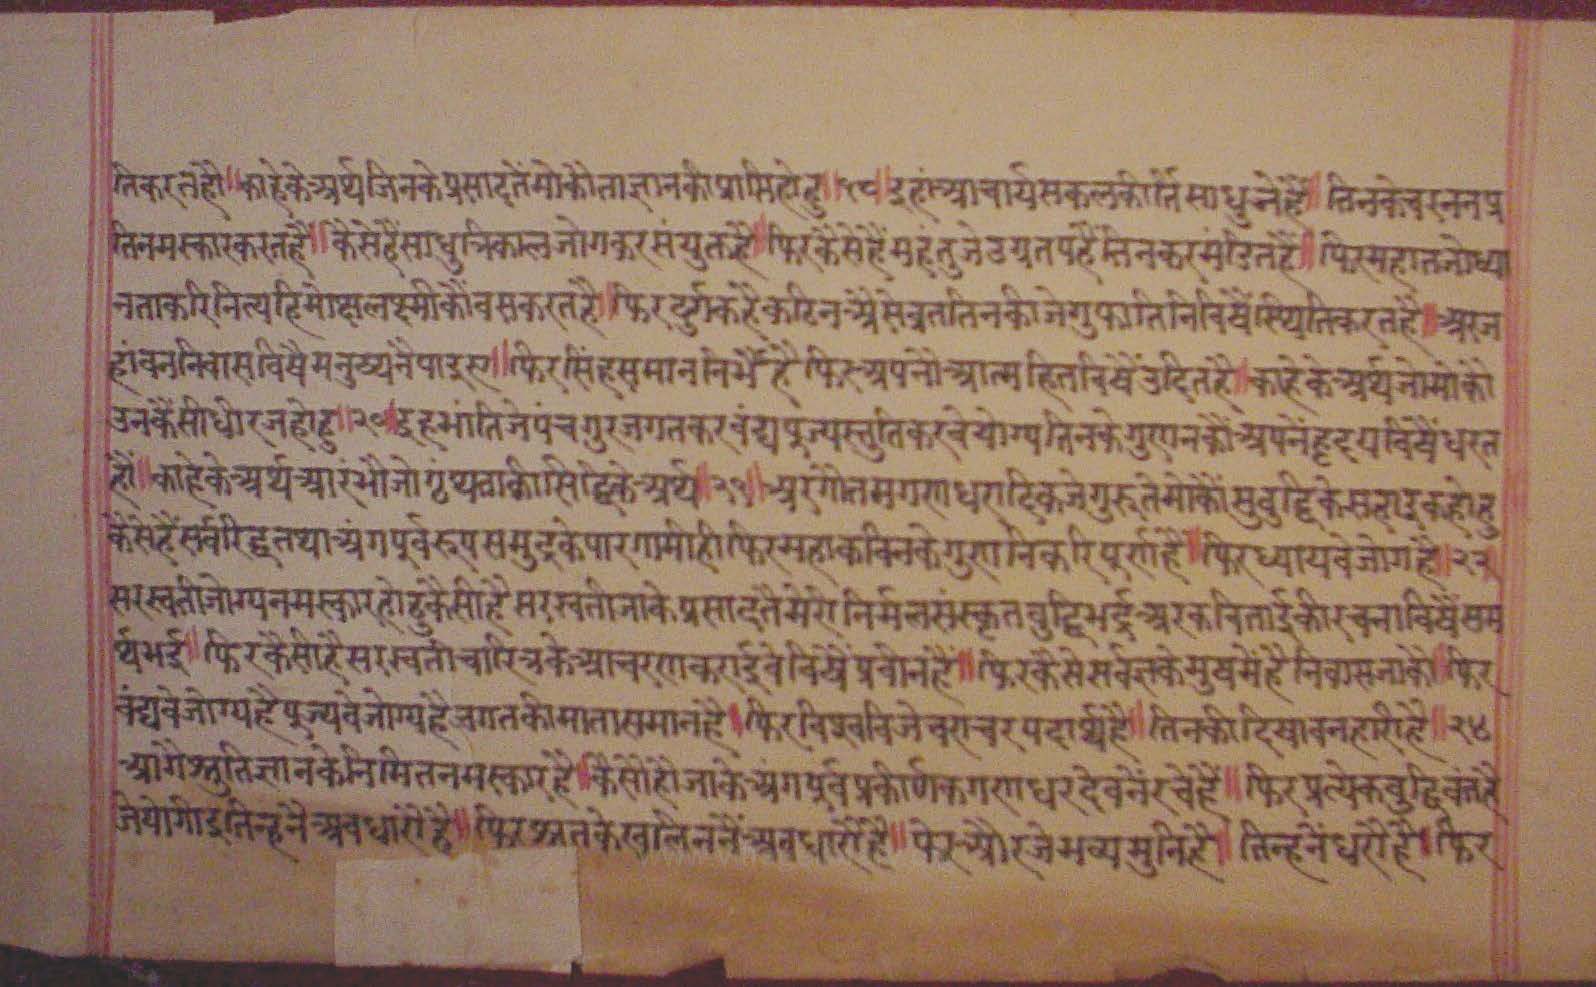 तिकरतहौ॥काहेकेअर्थजिनकेप्रसादतेंमोकौताज्ञानकीप्राप्तिहोहु॥१८॥इहांआचार्यसकलकीर्तिसाधुनेहैं॥तिनकेचरननप्र
तिनमस्कारकरतहै॥कैसेहैंसाधुत्रिकालजोगकरसंयुक्तहै॥फिरकैसेहैंमहंतुजेउग्रतपहैंतिनकरमंडितहैं॥फिरमहातजोध्या
नताकरिनित्यहिमोक्षलक्ष्मीकौंवसकरतहै॥फिरदुर्गकहैकठिनऐसेव्रततिनकीजेगुफातिनिविषैंस्थितिकरतहै॥अरज
हांवननिवासविषैमनुष्यनैपाइए॥फिरसिंहसमाननिर्भैहै फिरअपनौआत्महितविषैंउदितहै॥काहेकेअर्थजोमोकौ
उनकैसीधीरजहोहु॥२०॥इहभांतिजेपंचगुरजगतकरवंद्यपूज्यस्तुतिकरवेयोग्यतिनकेगुणनकौंअपनेंहृदयविषैंधरत
हौं॥काहेकेअर्थआरंभौजोगृंथताकीसिद्धिकेअर्थ॥२१॥अरगौतमगणधरादिकजेगुरुतेमोकौंसुबुद्धिकेसहाइकहोहु
कैसेहैंसर्वरिद्धतथाअंगपूर्वरूपसमुद्रकेपारगामीहीफिरमहाकविनकेगुणनिकरिपूर्णहैं॥फिरध्यायवेजोगहै॥२२॥
सरस्वतीजोग्यनमस्कारहोहुकैसीहैसरस्वतीजाकेप्रसादतैमेरीनिर्मलसंस्कृतबुद्धिभईअरकविताईकीरचनाविषैंसम
र्थभई॥फिरकैसीहैसरस्वतीचारित्रकेआचरणकराईवेविषैंप्रवीनहैं॥फिरकैसेसर्वज्ञकेमुखमेंहैनिवासजाकौ॥फिर
वंद्यवेजोग्यहैपूज्यवेजोग्यहैजगतकीमातासमानहै॥फिरविश्वविजेचराचरपदार्थहै॥तिनकीदिखावनहारीहै॥२४
आगैस्तुतिज्ञानकेनिमितनमस्कारहै॥कैसौहौजाकेअंगपूर्वप्रकीर्णकगणधरदेवनैंरचेहैं॥फिरप्रत्येकबुद्धिवंतहै
जेयोगीइतिन्हनैअवधारौहै॥फिरश्रुतकेवलिननैंअवधारौहै॥फेरऔरजेभव्यमुनिहै॥तिन्हनैंधरौहै॥फिर